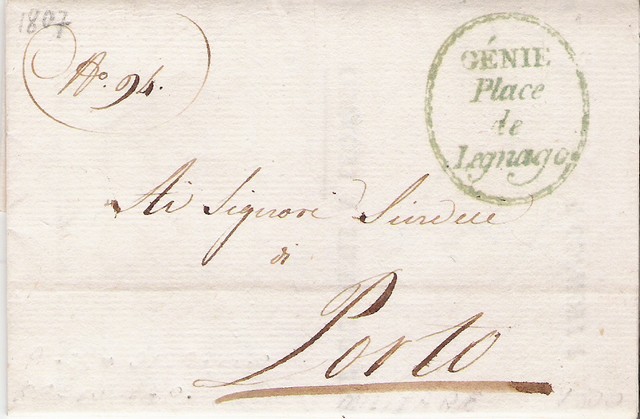 1807
No. 94.
GÉNIE
Place
de
Legnago
Ai Signori
di
Porto